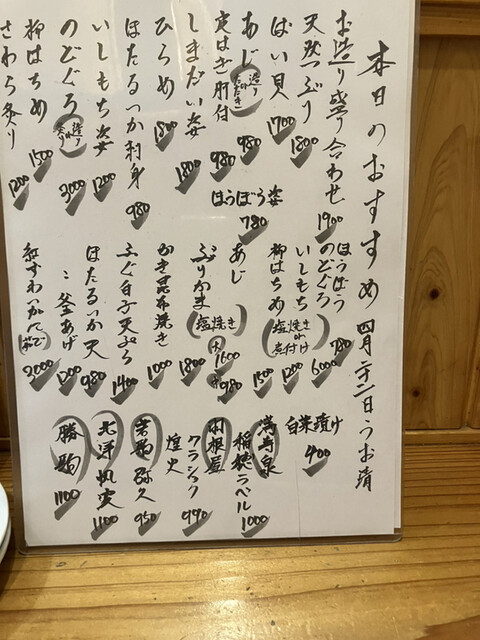 本日のおすすめ 四月二十二日 うお清
お造り盛り合わせ 1900
天然ぶり 1800
ばい貝 1700
あじ (造り たたき) 980
実はぎ肝付 980
しまだい姿 1800
ひらめ 1800
ほたるいか刺身 980
いしもち姿 1200
のどぐろ (造り 炙り) 3000
柳ばちめ 1500
さわら炙り 1200
ほうぼう姿 780
ほうぼう 780
のどぐろ 6000
いしもち 1200
柳ばちめ 1500
(塩焼き or 煮付け)
あじ 大1600 中980
ぶりかま (塩焼き) 1800
かき昆布焼き 1000
ふぐ白子天ぷら 1400
ほたるいか天 980
〃 釜あげ 1200
紅ずわいがに (ゆで) 2000
白菜漬け 400
満寿泉
稲穂ラベル 1000
羽根屋
クラシック 990
煌火
吉乃友 弥久 950
北洋 帆実 1100
勝駒 1100